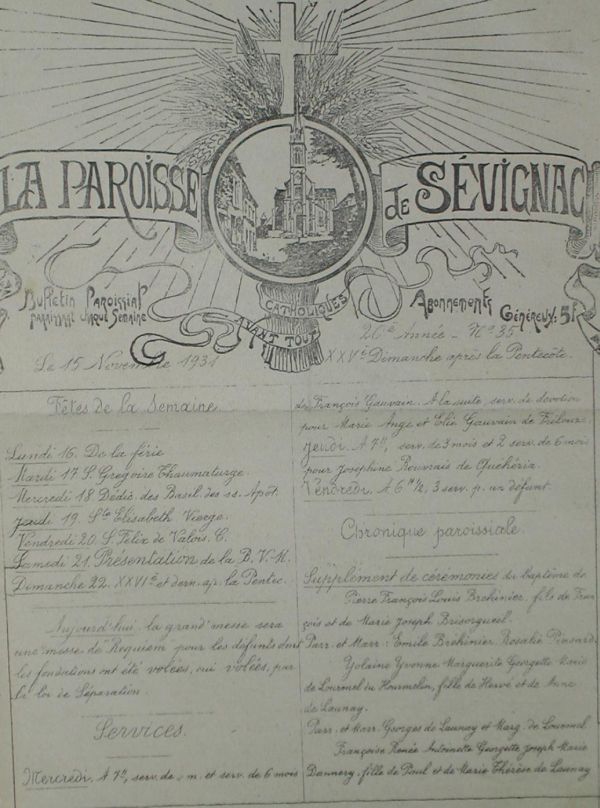 LA PAROISSE de SÉVIGNAC
CATHOLIQUES
AVANT TOUT
Bulletin Paroissial
paraissant chaque semaine
Abonnements
Généreux: 5f
26e Année - No 35
Le 15 Novembre 1931
XXVe Dimanche après la Pentecôte.
Fêtes de la Semaine
Lundi 16. De la férie
Mardi 17 S. Grégoire Thaumaturge.
Mercredi 18 Dédic. des Basil. des ss. Apôt.
Jeudi 19. Ste Elisabeth Vierge.
Vendredi 20 S. Félix de Valois. C.
Samedi 21. Présentation de la B. V. M.
Dimanche 22. XXVIe et dern. ap. la Pentec.
Aujourd'hui la grand'messe sera
une messe de Requiem pour les défunts dont
les fondations ont été volées, oui volées, par
la loi de Séparation.
Services.
Mercredi. A 7h, serv. de m. et serv. de 6 mois
de François Gauvain. A la suite serv. de dévotion
pour Marie Ange et Elie Gauvain de
Jeudi. A 7h, serv. de 3 mois et 2 serv. de 6 mois
pour Joséphine Rouvrais de
Vendredi. A 6h 1/2, 3 serv. p. un défunt.
Chronique paroissiale.
Supplément de cérémonies du baptême de
Pierre François Louis Brehinier, fils de Fran
çois et de Marie Joseph
Parr. et Marr: Emile Brehinier, Rosalie
Yolaine Yvonne Marguerite Georgette Marie
de Lourmel du Hourmelin, fille de Hervé et de Anne
de Launay.
Parr. et Marr. Georges de Launay et Marg. de Lourmel
Françoise Renée Antoinette Georgette Joseph Marie
Dannery, fille de Paul et de Marie Thérèse de Launay